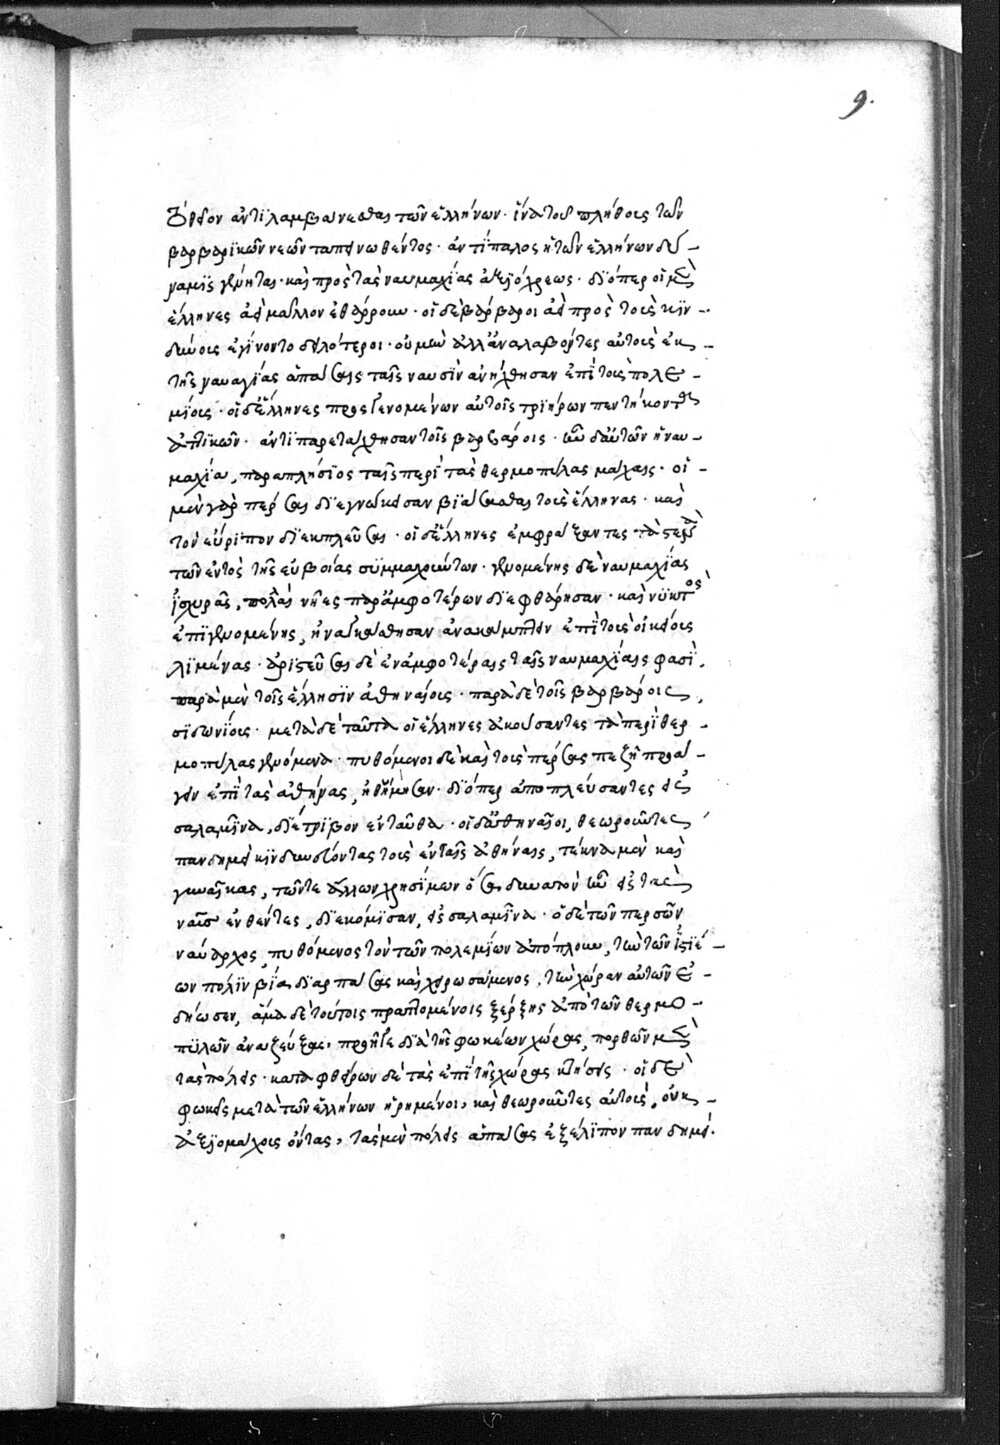 9.
θεῖον ἀντιλαμβάνεσθαι τῶν ἑλλήνων · ἵνα τοῦ πλήθους τῶν
βαρβαρικῶν νεῶν ταπεινωθέντος · ἀντίπαλος ἡ τῶν ἑλλήνων δύ-
ναμις γένηται · καὶ πρὸς τὰς ναυμαχίας ἀξιόχρεως · διόπερ οἱ μὲν
ἕλληνες ἀεὶ μᾶλλον ἐθάρρουν · οἱ δὲ βάρβαροι ἀεὶ πρὸς τοὺς κιν-
δύνους ἐγίνοντο δειλότεροι · οὐ μὴν ἀλλ' ἀναλαβόντες αὐτοὺς ἐκ
τῆς ναυαγίας ἁπάσαις ταῖς ναυσὶν ἀνήχθησαν ἐπὶ τοὺς πολε-
μίους · οἱ δ' ἕλληνες προσγενομένων αὐτοῖς τριήρων πεντήκοντα
ἀττικῶν · ἀντιπαρετάχθησαν τοῖς βαρβάροις · ἦν δ' αὐτῶν ἡ ναυ-
μαχία, παραπλήσιος ταῖς περὶ τὰς θερμοπύλας μάχαις · οἱ
μὲν γὰρ πέρσαι διεγνώκεσαν βιάσασθαι τοὺς ἕλληνας · καὶ
τὸν εὔριπον διεκπλεῦσαι · οἱ δ' ἕλληνες ἐμφράξαντες τὰ στενὰ
τῶν ἐντὸς τῆς εὐβοίας συμμαχούντων · γενομένης δὲ ναυμαχίας
ἰσχυρᾶς, πολλαὶ νῆες παρ' ἀμφοτέρων διεφθάρησαν · καὶ νυκτὸς
ἐπιγενομένης, ἠναγκάσθησαν ἀνακάμπτειν ἐπὶ τοὺς οἰκείους
λιμένας · ἀριστεῦσαι δὲ ἐν ἀμφοτέραις ταῖς ναυμαχίαις φασὶ,
παρὰ μὲν τοῖς ἕλλησιν ἀθηναίους · παρὰ δὲ τοῖς βαρβάροις,
σιδωνίους · μετὰ δὲ ταῦτα οἱ ἕλληνες ἀκούσαντες τὰ περὶ θερ-
μοπύλας γενόμενα · πυθόμενοι δὲ καὶ τοὺς πέρσας πεζῇ προά-
γειν ἐπὶ τὰς ἀθήνας, ἠθύμησαν · διόπερ ἀποπλεύσαντες εἰς
σαλαμῖνα, διέτριβον ἐνταῦθα · οἱ δ' ἀθηναῖοι, θεωροῦντες
πανδημεὶ κινδυνεύοντας τοὺς ἐν ταῖς ἀθήναις, τέκνα μὲν καὶ
γυναῖκας, τῶν τε ἄλλων χρησίμων ὅσα δυνατὸν ἦν εἰς τὰς
ναῦς ἐνθέντες, διεκόμισαν, εἰς σαλαμῖνα · ὁ δὲ τῶν περσῶν
ναύαρχος, πυθόμενος τὸν τῶν πολεμίων ἀπόπλουν, τὴν τῶν ἱστιέ-
ων πόλιν βίᾳ διαρπάσας καὶ χειρωσάμενος, τὴν χώραν αὐτῶν ἐ-
δήωσεν, ἅμα δὲ τούτοις πραττομένοις ξέρξης ἀπὸ τῶν θερμο-
πυλῶν ἀναζεύξας, προῆγε διὰ τῆς φωκέων χώρας, πορθῶν μὲν
τὰς πόλεις · καταφθείρων δὲ τὰς ἐπὶ τῆς χώρας κτήσεις · οἱ δὲ
φωκεῖς μετὰ τῶν ἑλλήνων ᾑρημένοι, καὶ θεωροῦντες αὑτοὺς, οὐκ
ἀξιομάχους ὄντας, τὰς μὲν πόλεις ἁπάσας ἐξέλιπον πανδημεί.